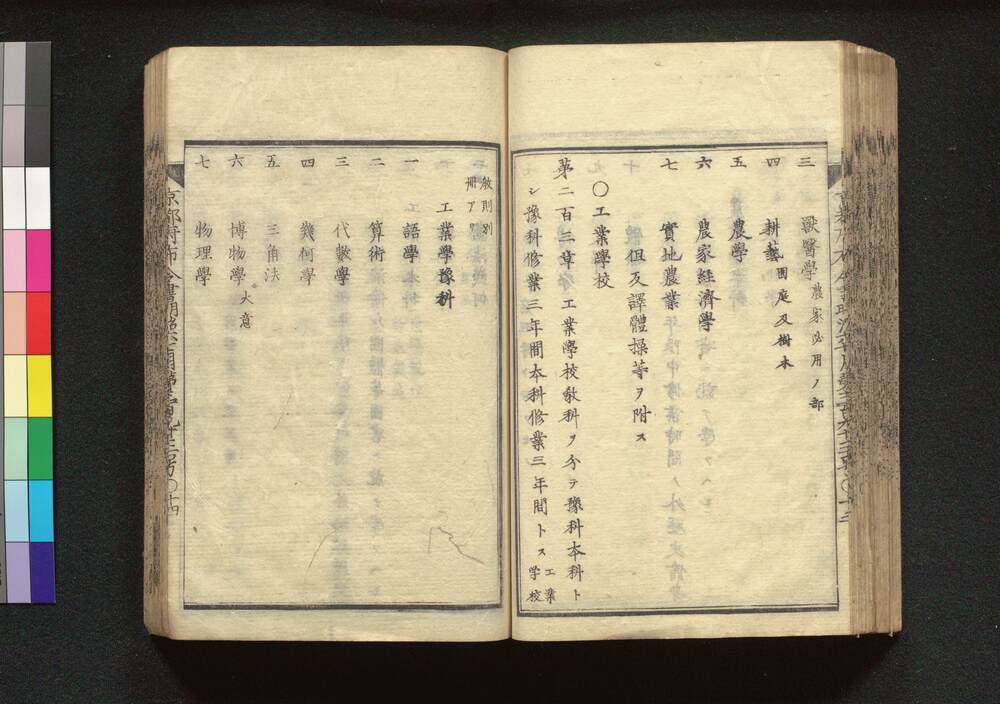 三　獸醫學農家必用ノ部
四　耕藝園庭及樹木
五　農學
六　農家経済學
七　實地農業
但反譯體操等ヲ附ス
〇工業學校
第二百三章　工業學校敎科ヲ分テ豫科本科ト
シ豫科修業三年間本科修業三年間トス工業學校
敎則別冊アリ
工業學豫科
一　語學
二　算術
三　代數學
四　幾何學
五　三角法
六　博物學大意
七　物理學
京都府布令書明治六